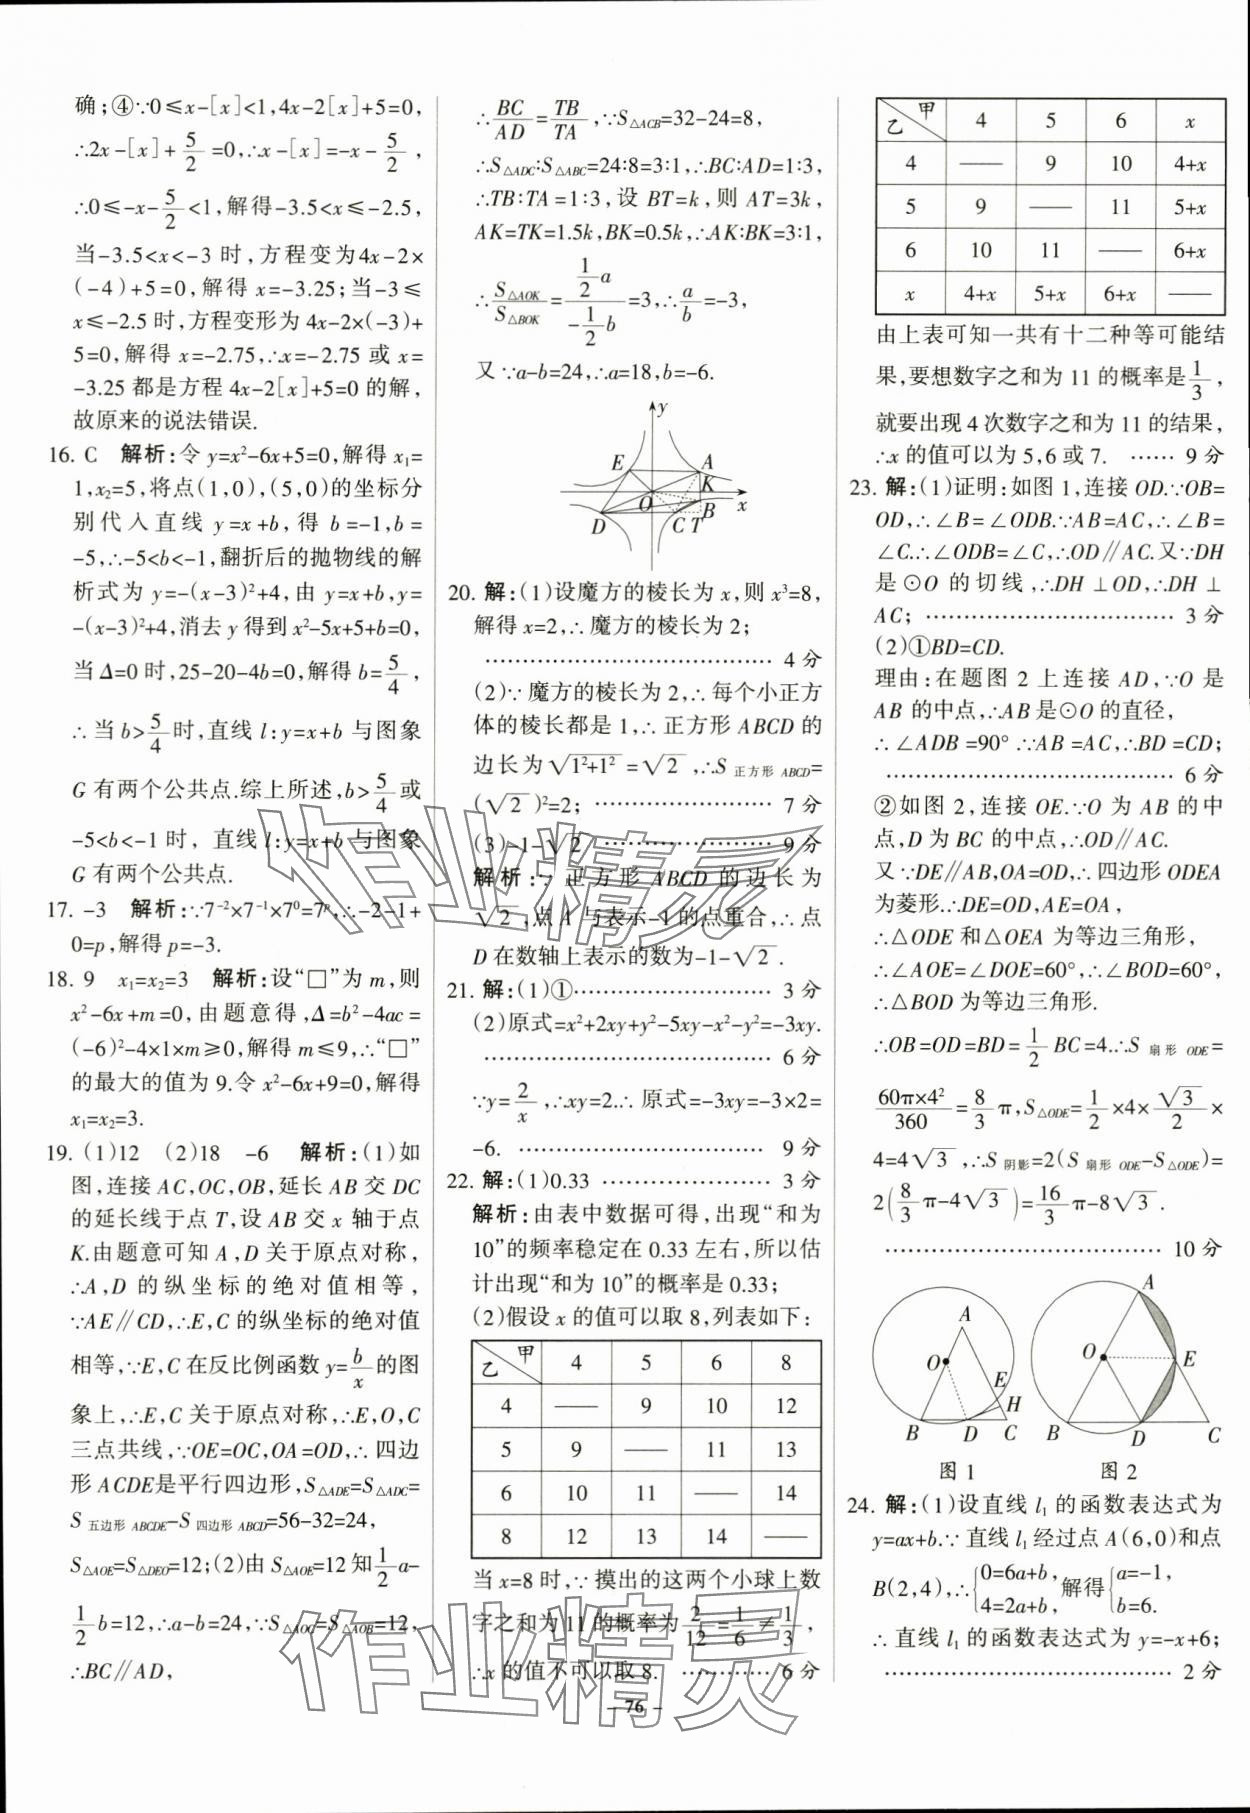 确；④∵0≤x-[x]<1,4x-2[x]+5=0,
∴2x-[x]+5/2=0,∴x-[x]=-x-5/2,
∴0≤-x-5/2<1,解得-3.5<x≤-2.5,
当-3.5<x<-3时,方程变为4x-2×
(-4)+5=0,解得x=-3.25;当-3≤
x≤-2.5时,方程变形为4x-2×(-3)+
5=0,解得x=-2.75,∴x=-2.75或x=
-3.25都是方程4x-2[x]+5=0的解,
故原来的说法错误.
16. C 解析:令y=x²-6x+5=0,解得x₁=
1,x₂=5,将点(1,0),(5,0)的坐标分
别代入直线y=x+b,得b=-1,b=
-5,∴-5<b<-1,翻折后的抛物线的解
析式为y=-(x-3)²+4,由y=x+b,y=
-(x-3)²+4,消去y得到x²-5x+5+b=0,
当Δ=0时,25-20-4b=0,解得b=5/4,
∴当b>5/4时,直线l:y=x+b与图象
G有两个公共点.综上所述,b>5/4或
-5<b<-1时,直线l:y=x+b与图象
G有两个公共点.
17. -3 解析:∵7⁻²×7⁻¹×7⁰=7ᵖ,∴-2-1+
0=p,解得p=-3.
18. 9 x₁=x₂=3 解析:设“□”为m,则
x²-6x+m=0,由题意得,Δ=b²-4ac=
(-6)²-4×1×m≥0,解得m≤9,∴“□”
的最大的值为9.令x²-6x+9=0,解得
x₁=x₂=3.
19. (1)12 (2)18 -6 解析:(1)如
图,连接AC,OC,OB,延长AB交DC
的延长线于点T,设AB交x轴于点
K.由题意可知A,D关于原点对称,
∴A,D的纵坐标的绝对值相等,
∵AE∥CD,∴E,C的纵坐标的绝对值
相等,∵E,C在反比例函数y=b/x的图
象上,∴E,C关于原点对称,∴E,O,C
三点共线,∵OE=OC,OA=OD,∴四边
形ACDE是平行四边形,S△ADE=S△ADC=
S五边形ABCDE-S四边形ABCD=56-32=24,
S△AOE=S△DEO=12;(2)由S△AOE=12知1/2a-
1/2b=12,∴a-b=24,∵S△AOC=S△AOB=12,
∴BC∥AD,
∴BC/AD=TB/TA,∵S△ACB=32-24=8,
∴S△ADC:S△ABC=24:8=3:1,∴BC:AD=1:3,
∴TB:TA=1:3,设BT=k,则AT=3k,
AK=TK=1.5k,BK=0.5k,∴AK:BK=3:1,
∴S△AOK/S△BOK=(1/2a)/(-1/2b)=3,∴a/b=-3,
又∵a-b=24,∴a=18,b=-6.
y
E A
K
O B x
D C T
20. 解:(1)设魔方的棱长为x,则x³=8,
解得x=2,∴魔方的棱长为2;
…………………………………… 4分
(2)∵魔方的棱长为2,∴每个小正方
体的棱长都是1,∴正方形ABCD的
边长为√(1²+1²)=√2,∴S正方形ABCD=
(√2)²=2; …………………… 7分
(3)-1-√2 …………………… 9分
解析:∵正方形ABCD的边长为
√2,点A与表示-1的点重合,∴点
D在数轴上表示的数为-1-√2.
21. 解:(1)①……………………… 3分
(2)原式=x²+2xy+y²-5xy-x²-y²=-3xy.
…………………………………… 6分
∵y=2/x,∴xy=2.∴原式=-3xy=-3×2=
-6. ……………………………… 9分
22. 解:(1)0.33 …………………… 3分
解析:由表中数据可得,出现“和为
10”的频率稳定在0.33左右,所以估
计出现“和为10”的概率是0.33;
(2)假设x的值可以取8,列表如下:
乙 甲 4 5 6 8
4 —— 9 10 12
5 9 —— 11 13
6 10 11 —— 14
8 12 13 14 ——
当x=8时,∵摸出的这两个小球上数
字之和为11的概率为2/12=1/6≠1/3,
∴x的值不可以取8. ………… 6分
乙 甲 4 5 6 x
4 —— 9 10 4+x
5 9 —— 11 5+x
6 10 11 —— 6+x
x 4+x 5+x 6+x ——
由上表可知一共有十二种等可能结
果,要想数字之和为11的概率是1/3,
就要出现4次数字之和为11的结果,
∴x的值可以为5,6或7. …… 9分
23. 解:(1)证明:如图1,连接OD.∵OB=
OD,∴∠B=∠ODB.∵AB=AC,∴∠B=
∠C.∴∠ODB=∠C,∴OD∥AC.又∵DH
是⊙O的切线,∴DH⊥OD,∴DH⊥
AC; ……………………………… 3分
(2)①BD=CD.
理由:在题图2上连接AD,∵O是
AB的中点,∴AB是⊙O的直径,
∴∠ADB=90°∵AB=AC,∴BD=CD;
…………………………………… 6分
②如图2,连接OE.∵O为AB的中
点,D为BC的中点,∴OD∥AC.
又∵DE∥AB,OA=OD,∴四边形ODEA
为菱形.∴DE=OD,AE=OA,
∴△ODE和△OEA为等边三角形,
∴∠AOE=∠DOE=60°,∴∠BOD=60°,
∴△BOD为等边三角形.
∴OB=OD=BD=1/2BC=4.∴S扇形ODE=
60π×4²/360=8/3π,S△ODE=1/2×4×√3/2×
4=4√3,∴S阴影=2(S扇形ODE-S△ODE)=
2(8/3π-4√3)=16/3π-8√3.
………………………………… 10分
A
O
E
H
B D C
图1
A
O E
B D C
图2
24. 解:(1)设直线l₁的函数表达式为
y=ax+b.∵直线l₁经过点A(6,0)和点
B(2,4),∴{0=6a+b, 4=2a+b,解得{a=-1, b=6.
∴直线l₁的函数表达式为y=-x+6;
…………………………………… 2分
作业精灵
作业精灵
- 76 -